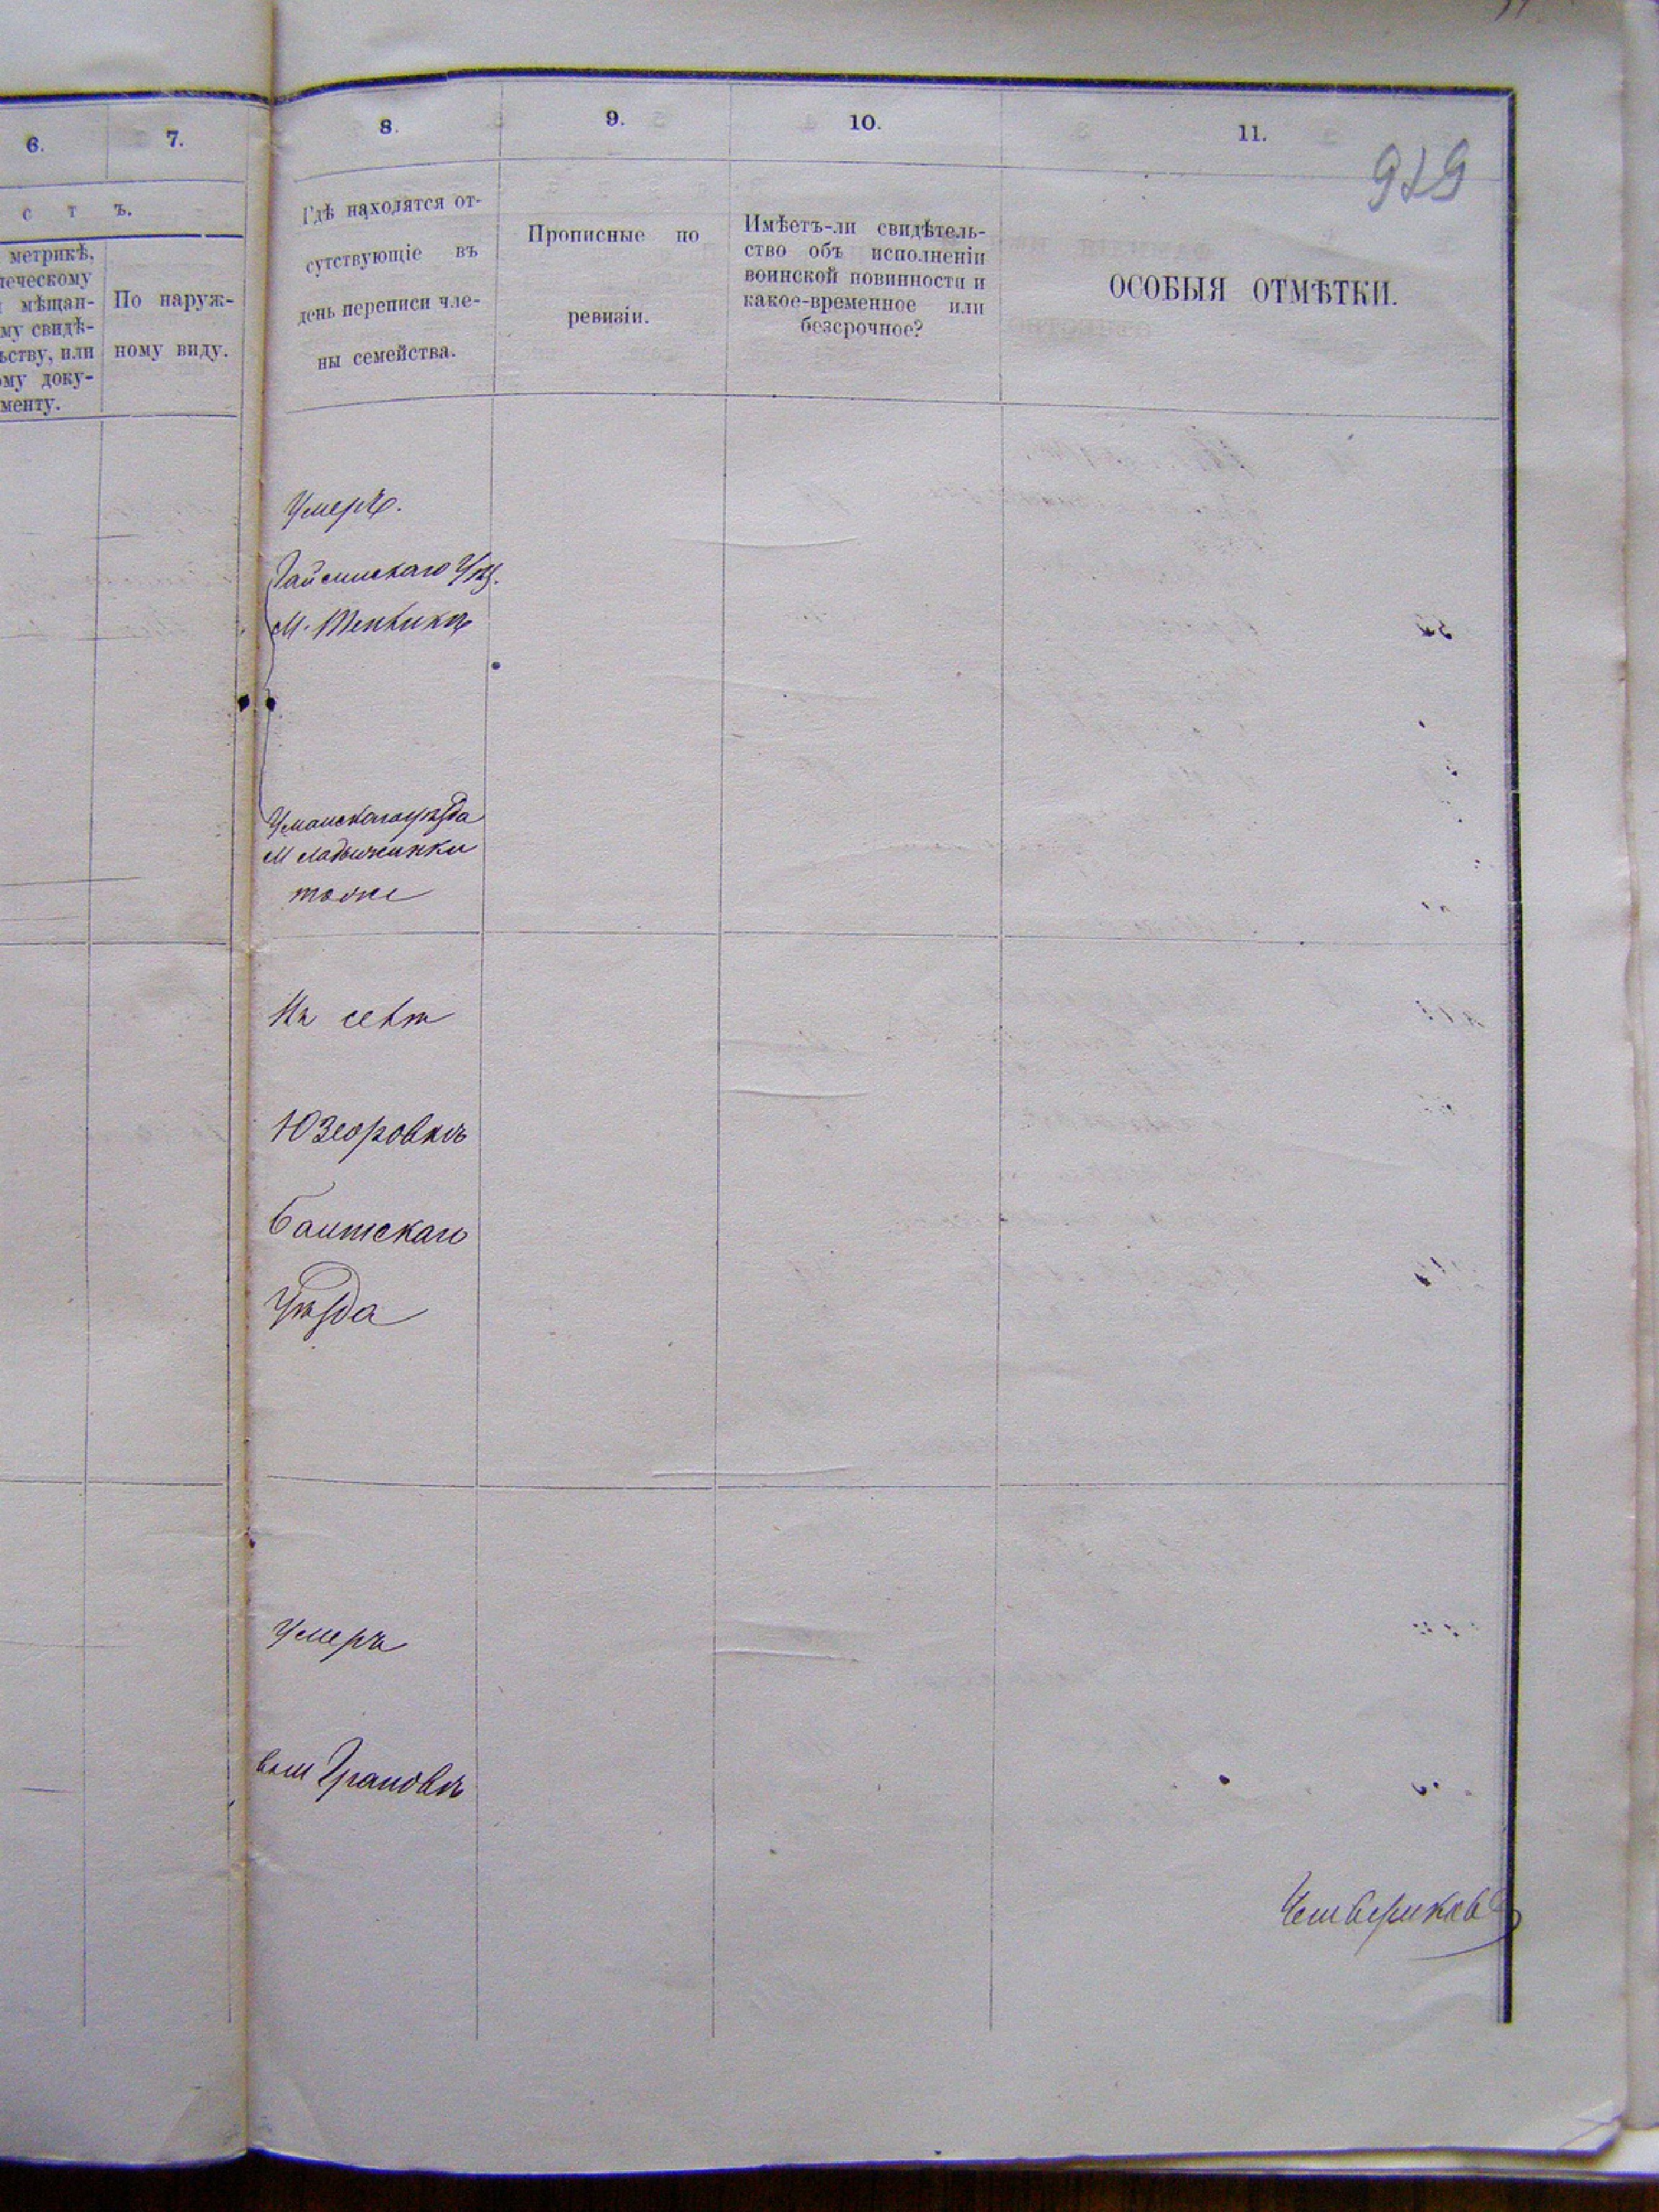 6.
7.
8.
9.
10.
11.
с т ъ.
метрикѣ,
мѣщан-
му свидѣ-
ству, или
доку-
менту.
По наруж-
ному виду.
Гдѣ находятся от-
сутствующіе въ
день переписи чле-
ны семейства.
Прописные по
ревизіи.
Имѣетъ-ли свидѣтель-
ство объ исполненіи
воинской повинности и
какое-временное или
безсрочное?
ОСОБЫЯ ОТМѢТКИ.
Умеръ.
Гайсинскаго У.
М. Тепликъ
Уманскаго уѣзда
М Ладыжинки
тоже
Юзеоровкѣ
Балтскаго
Уѣзда
Умеръ
Грановѣ
Четвериковъ